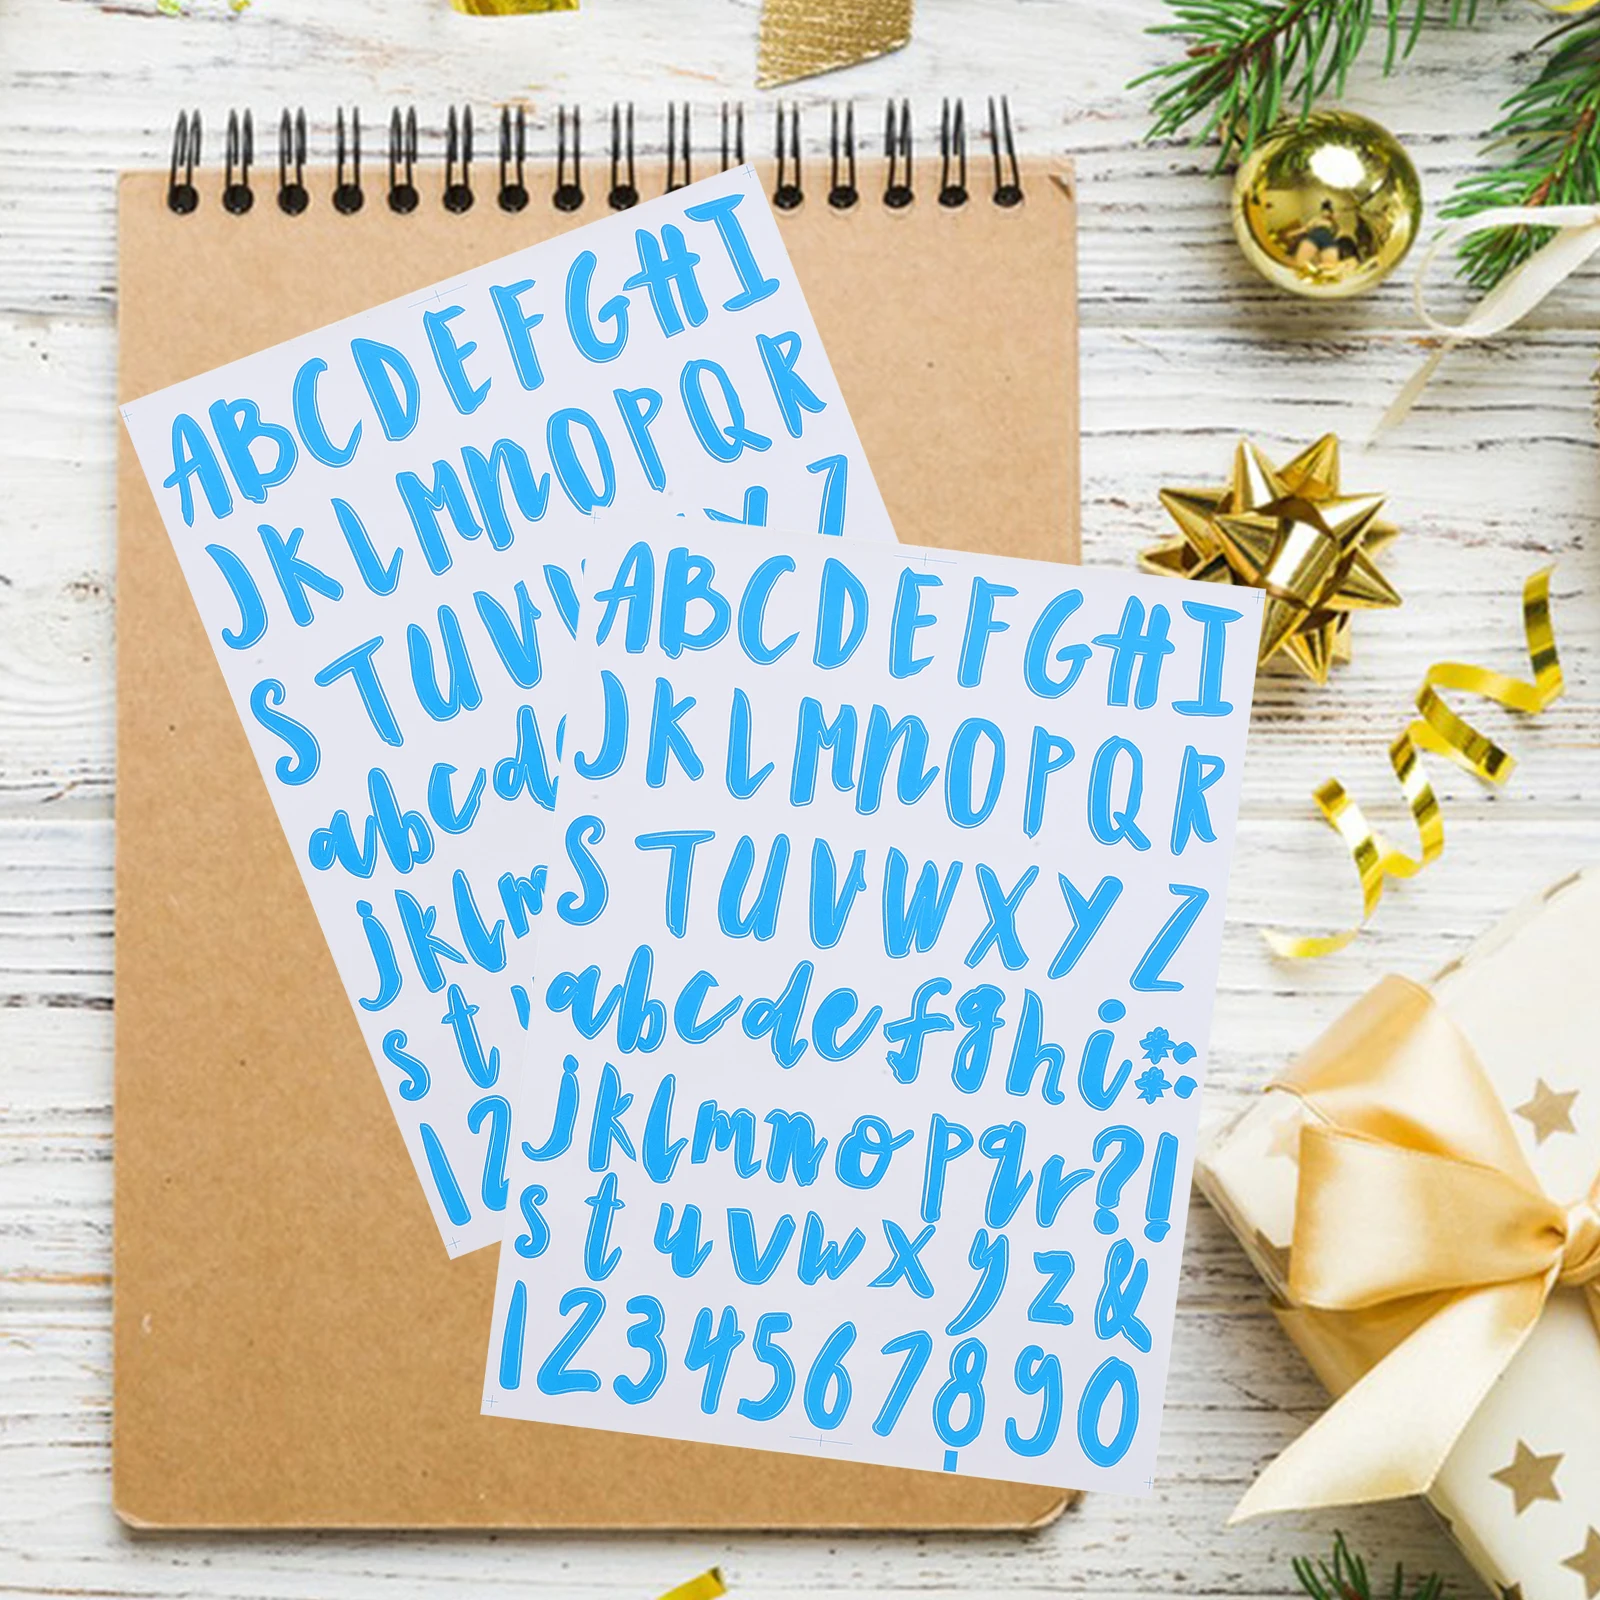 ABCDEFGHI
JKLMNOPQR
STUV
abcd
jklm
st
12
ABCDEFGHI
JKLMNOPQR
STUVWXYZ
abcdefghi
jklmnopqr?!
stuvwxyz&
1234567890